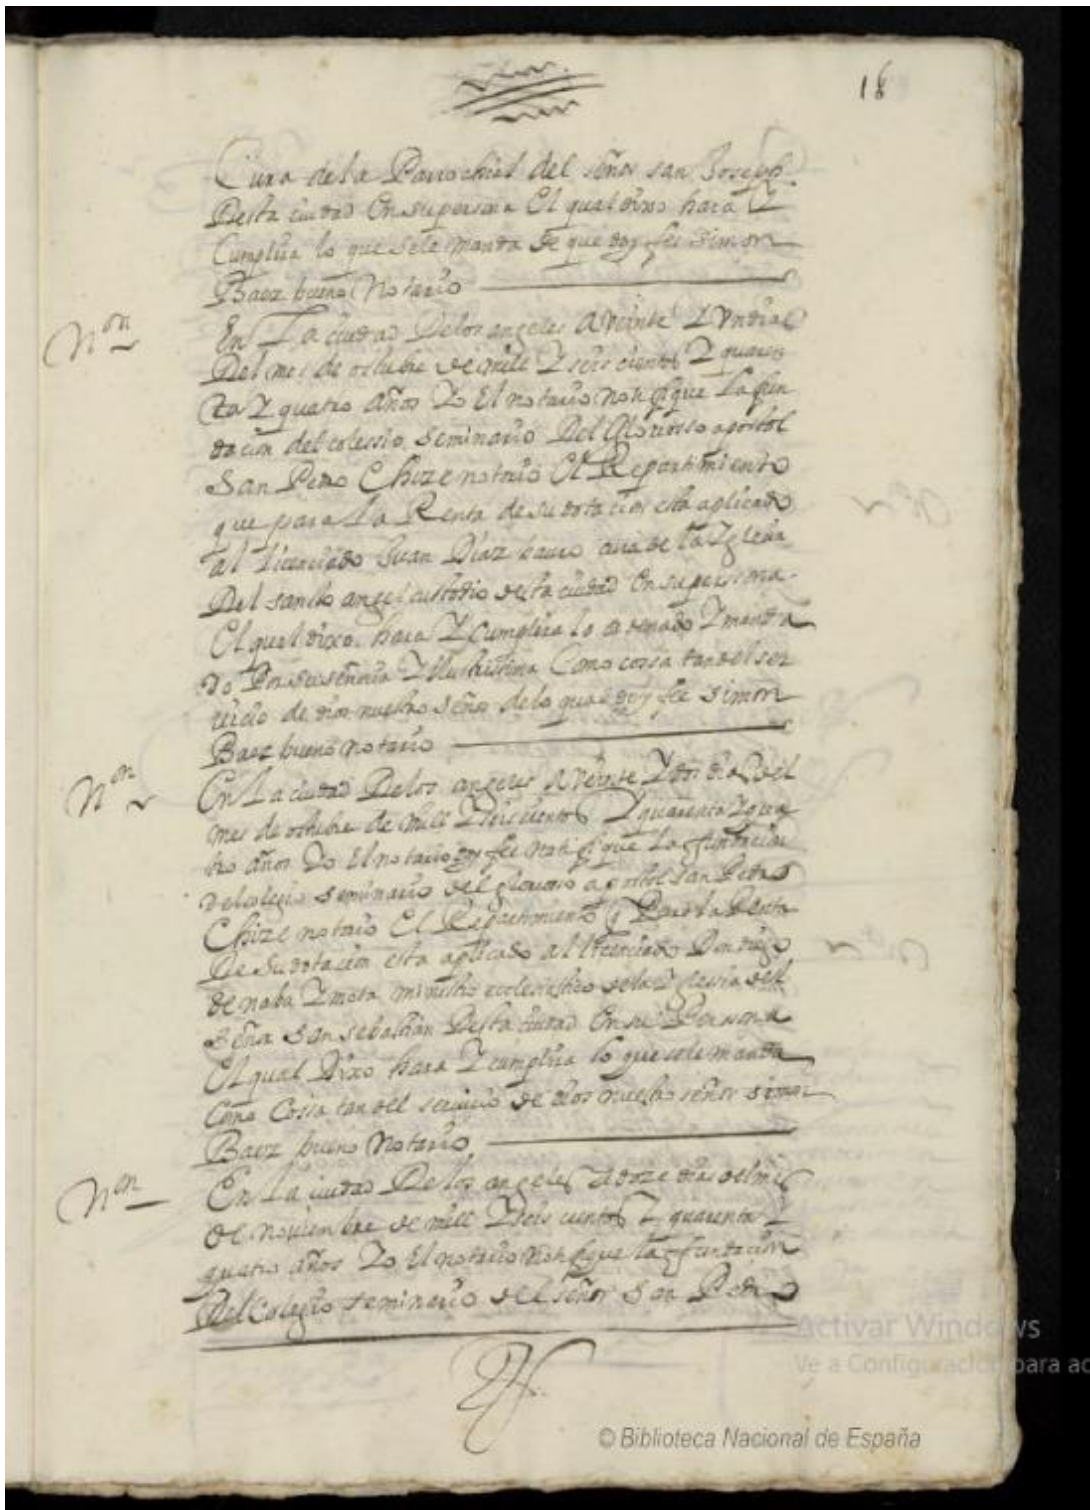 18
Cura de la Parrochial del señor san Joseph
Desta ciudad En su persona El qual dixo hara Y
Cumplira lo que se le manda de que doy fee simon
Baez bueno Notario
Non
En La ciudad Delos angeles a veinte Y Un dias
Del mes de octubre de mill Y seis cientos Y quaren
ta Y quatro años Yo El notario notifique La fun
dacion del colessio seminario Del Glorioso apostol
San Pedro E hize notorio El Repartimiento
que para La Renta de su dotacion esta aplicado
al licenciado Juan Diaz cura de la Yglesia
Del sancto angel custodio desta ciudad En su persona
El qual dixo hara Y Cumplira lo ordenado Y manda
do Por su señoria Yllustrissima Como cossa tan del ser
uicio de dios nuestro señor delo qual doy fee simon
Baez bueno notario
Non
En La ciudad Delos angeles a veinte Y dos dias del
mes de octubre de mill Y seiscientos Y quarenta Y qua
tro años Yo El notario doy fee notifique La fundacion
del colegio seminario del glorioso apostol san Pedro
E hize notorio El Repartimiento q Para la Renta
De su dotacion esta aplicado al licenciado Don diego
de naba Y mota ministro ecclesiastico dela Yglesia del
señor san sebastian Desta ciudad En su Persona
El qual Dixo hara Y cumplira lo que se le manda
Como Cossa tan del seruicio de dios nuestro señor simon
Baez bueno Notario
Non
En La ciudad Delos angeles a doze dias del mes
de nouiembre de mill Y seis cientos Y quarenta Y
quatro años Yo El notario notifique la fundacion
Del Colegio seminario del señor San Pedro
Activar Windows
Ve a Configuración para ac
© Biblioteca Nacional de España